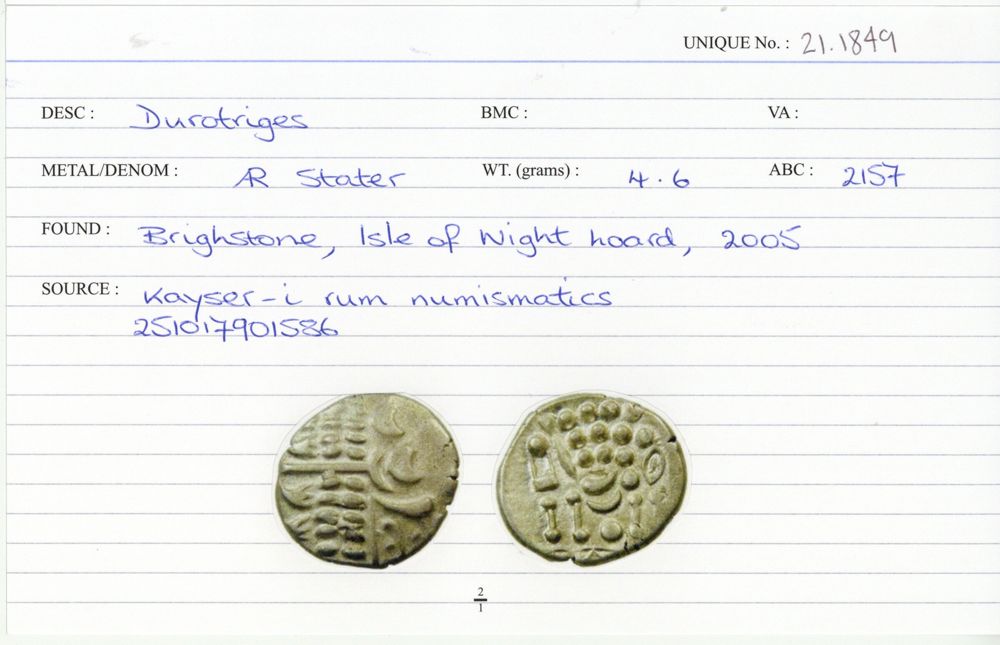 UNIQUE No. : 21.1849
DESC : Durotriges BMC : VA :
METAL/DENOM : AR Stater WT. (grams) : 4.6 ABC : 2157
FOUND : Brighstone, Isle of Wight hoard, 2005
SOURCE : Kayser-i rum numismatics
251017901586
2
1